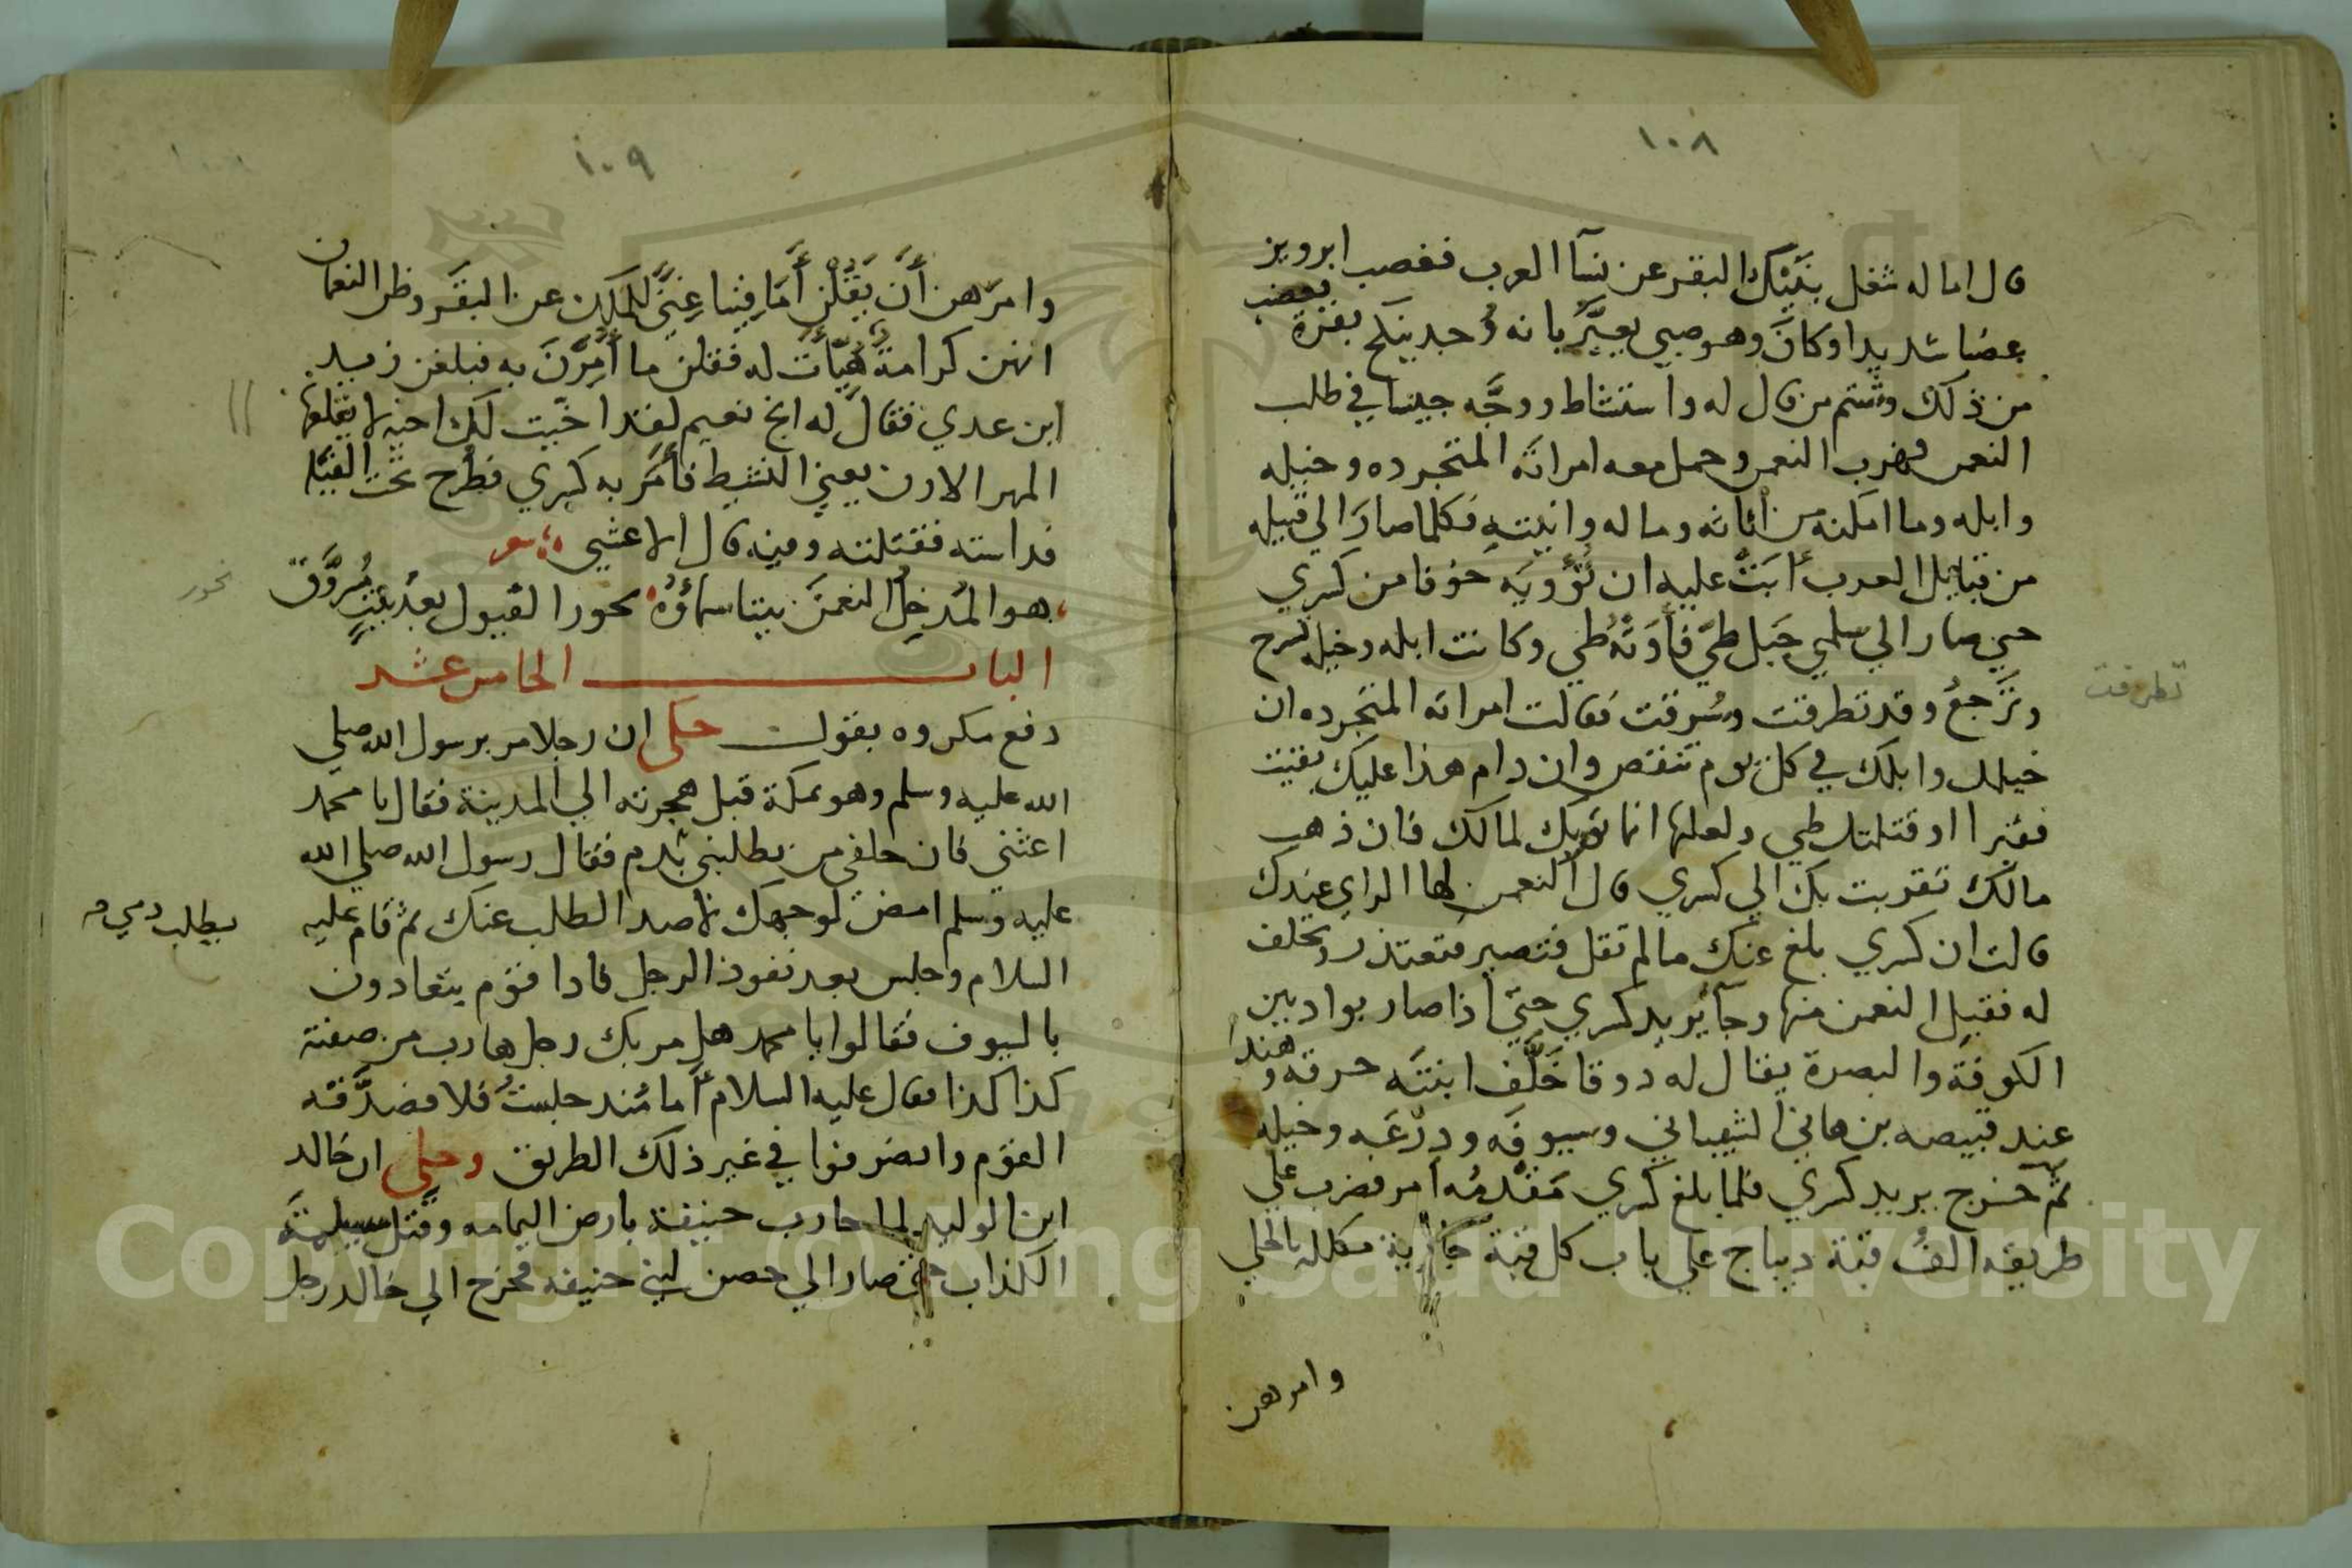 ١٠٨
قال اما له شغل بنَيْك البقر عن نسآ العرب فغصب ابرويز
عضبا شديدا وكانَ وهو صبي يعيَّر بانه وُجد ينكح بقرة فغضب
من ذلك وشتم من قال له واستشاط ووجَّه جيشا في طلب
النعمن فهرب النعمن وحمل معه امراته المتجرده وخيله
وابله وما امكنه من اثاثه وماله وانيته فكلما صارَ الي قبيله
من قبايل العرب أبَتْ عليه ان تُؤْويَه خوفا من كسري
حتي صار الي سلمي جَبل طيّ فأوَتْهُ طي وكانت ابله وخيله تسرح
وتَرجعُ وقد تطرفت وسُرقت فقالت امراته المتجرده ان
خيلك وابلك في كل يوم تنقص وان دام هذا عليك بقيت
فقيرا او قتلتك طي ولعلها انما تؤيك لمالك فان ذهب
مالك تقربت بك الي كسري قال النعمن لها الراي عندك
قالت ان كسري بلغ عنك ما لم تقل فتصير فتعتذر وتحلف
له فقبل النعمن منها وجآ يريد كسري حتي اذا صار بواد بين
الكوفة والبصرة يقال له ذوقا خَلَّف ابنتَه حرقه وهندا
عند قبيصه بن هاني الشيباني وسيوفَه ودِرْعَه وخيله
ثم خرج يريد كسري فلما بلغ كسري مَقْدمُه أمر فضرب علي
طريقه الفُ قبة ديباج علي باب كل قبة جارية مكلله بالحلي
وامرهن
تطرفت
١٠٩
وامرَهن أَنْ يَقُلْنَ أَمَا فِينا غِنيً للمَلِك عن البقَر وظن النعمان
انهن كرامةً هُيِّأَت له فقلن ما أُمِرْنَ به فبلغن زيد
ابن عدي فقال له انج نعيم لقد اخيت لك اخيه لا يقلعها
المهر الارن يعني النشيط فأمَر به كسري فطُرح تحت الفيَله
فداسته فقتلته وفيه قال الاعشي شعر
هو المُدخِلُ النعمنَ بيتا سماؤُهُ نحور الفيول بعدَ بيتٍ مُرَوَّق
نحور
الباب الخامس عشر
دفع مكروه بقول حكي ان رجلا مر برسول الله صلي
الله عليه وسلم وهو بمكة قبل هجرته الي المدينة فقال يا محمد
اغثني فان خلفي من يطلبني بدم فقال رسول الله صلي الله
عليه وسلم امض لوجهك لاصد الطلب عنك ثم قام عليه
يطلب دمي
السلام وجلس بعد نفوذ الرجل فاذا قوم يتعادون
بالسيوف فقالوا يا محمد هل مر بك رجل هارب من صفته
كذا كذا فقال عليه السلام أما مُنذ جلستُ فلا فصدَّقه
القوم وانصرفوا في غير ذلك الطريق وحكي ان خالد
ابن الوليد لما حارب حنيفة بارض اليمامه وقتل مسيلمةَ
الكذاب حتي صار الي حصن لبني حنيفه فخرج الي خالد رجل